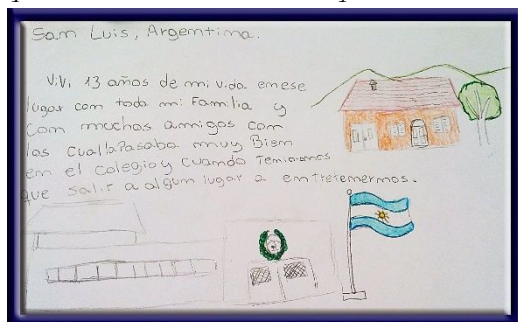 San Luis, Argentina.
Viví 13 años de mi vida en ese
lugar con toda mi Familia y
con muchos amigos con
los cual la Pasaba muy Bien
en el colegio y cuando teniamos
que salir a algún lugar a entretenernos.